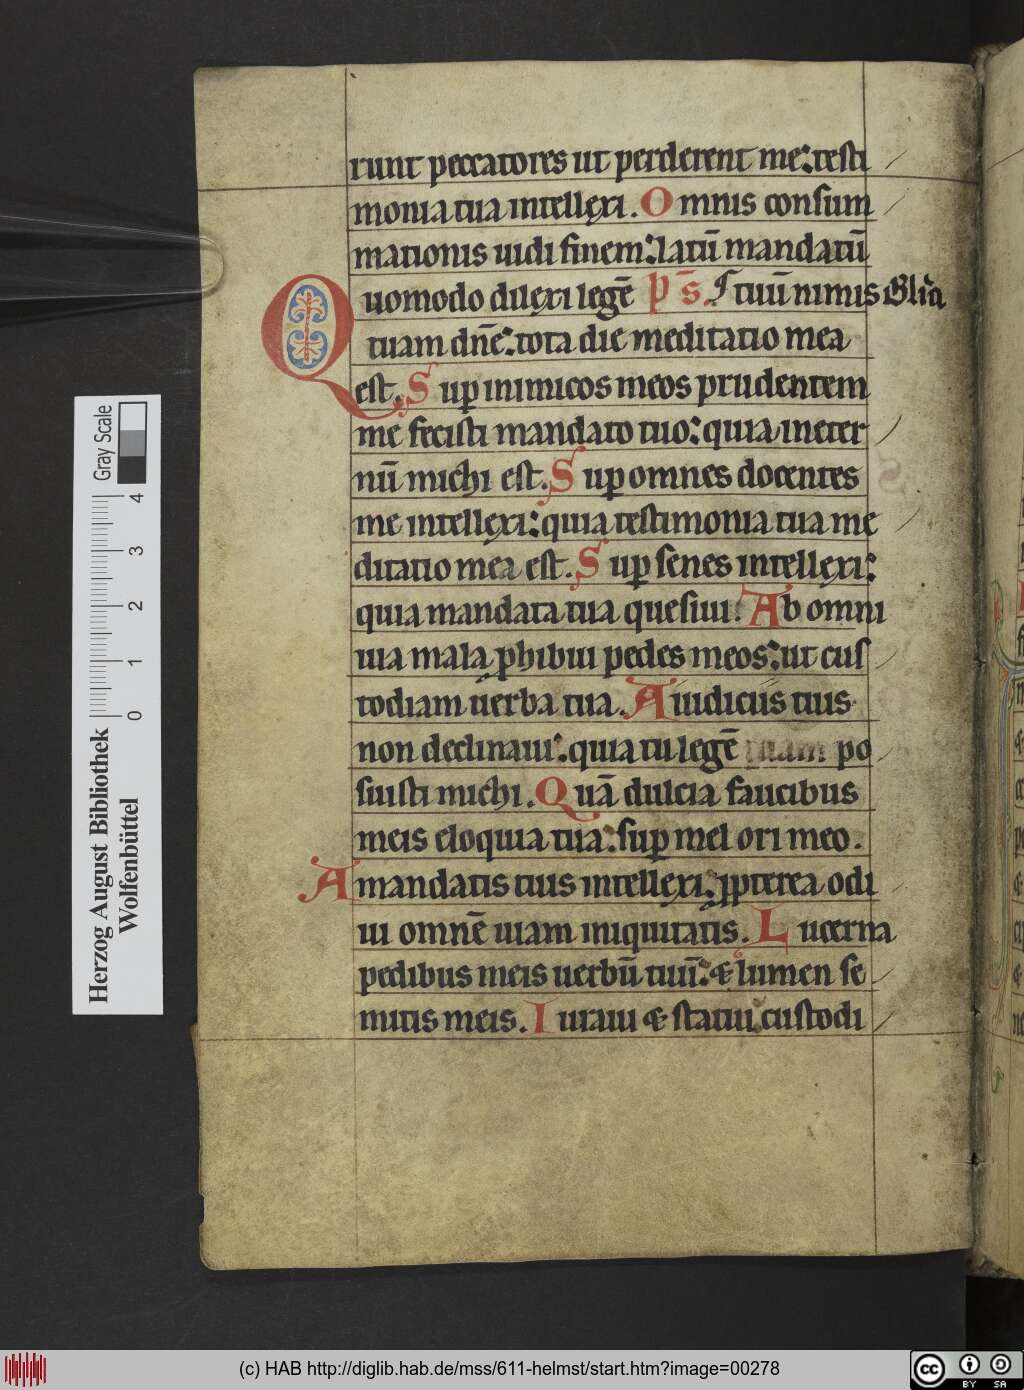 runt peccatores ut perderent me: testi
monia tua intellexi. Omnis consum
mationis uidi finem: latū mandatū
Quomodo dilexi legē p̄s. tuū nimis Glīa
tuam dn̄e: tota die meditatio mea
est. Sup inimicos meos prudentem
me fecisti mandato tuo: quia ineter
nū michi est. Sup omnes docentes
me intellexi: quia testimonia tua me
ditatio mea est. Sup senes intellexi:
quia mandata tua quesiui. Ab omni
uia mala ꝓhibui pedes meos: ut cus
todiam uerba tua. A iudiciis tuis
non declinaui: quia tu legē tuam po
suisti michi. Quā dulcia faucibus
meis eloquia tua: sup mel ori meo.
A mandatis tuis intellexi: ꝓpterea odi
ui omnē uiam iniquitatis. Lucerna
pedibus meis uerbū tuū: & lumen se
mitis meis. Iuraui & statui custodi
Herzog August Bibliothek
Wolfenbüttel
0 1 2 3 4
Gray Scale
(c) HAB http://diglib.hab.de/mss/611-helmst/start.htm?image=00278
cc BY SA